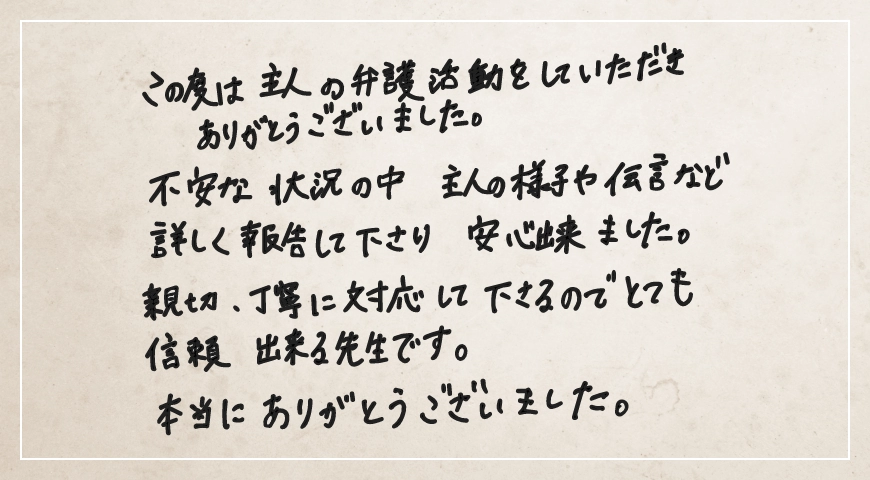 この度は 主人の弁護活動をしていただき
ありがとうございました。
不安な 状況の中 主人の様子や伝言など
詳しく報告して下さり 安心出来ました。
親切、丁寧に対応して下さるのでとても
信頼 出来る先生です。
本当に ありがとうございました。